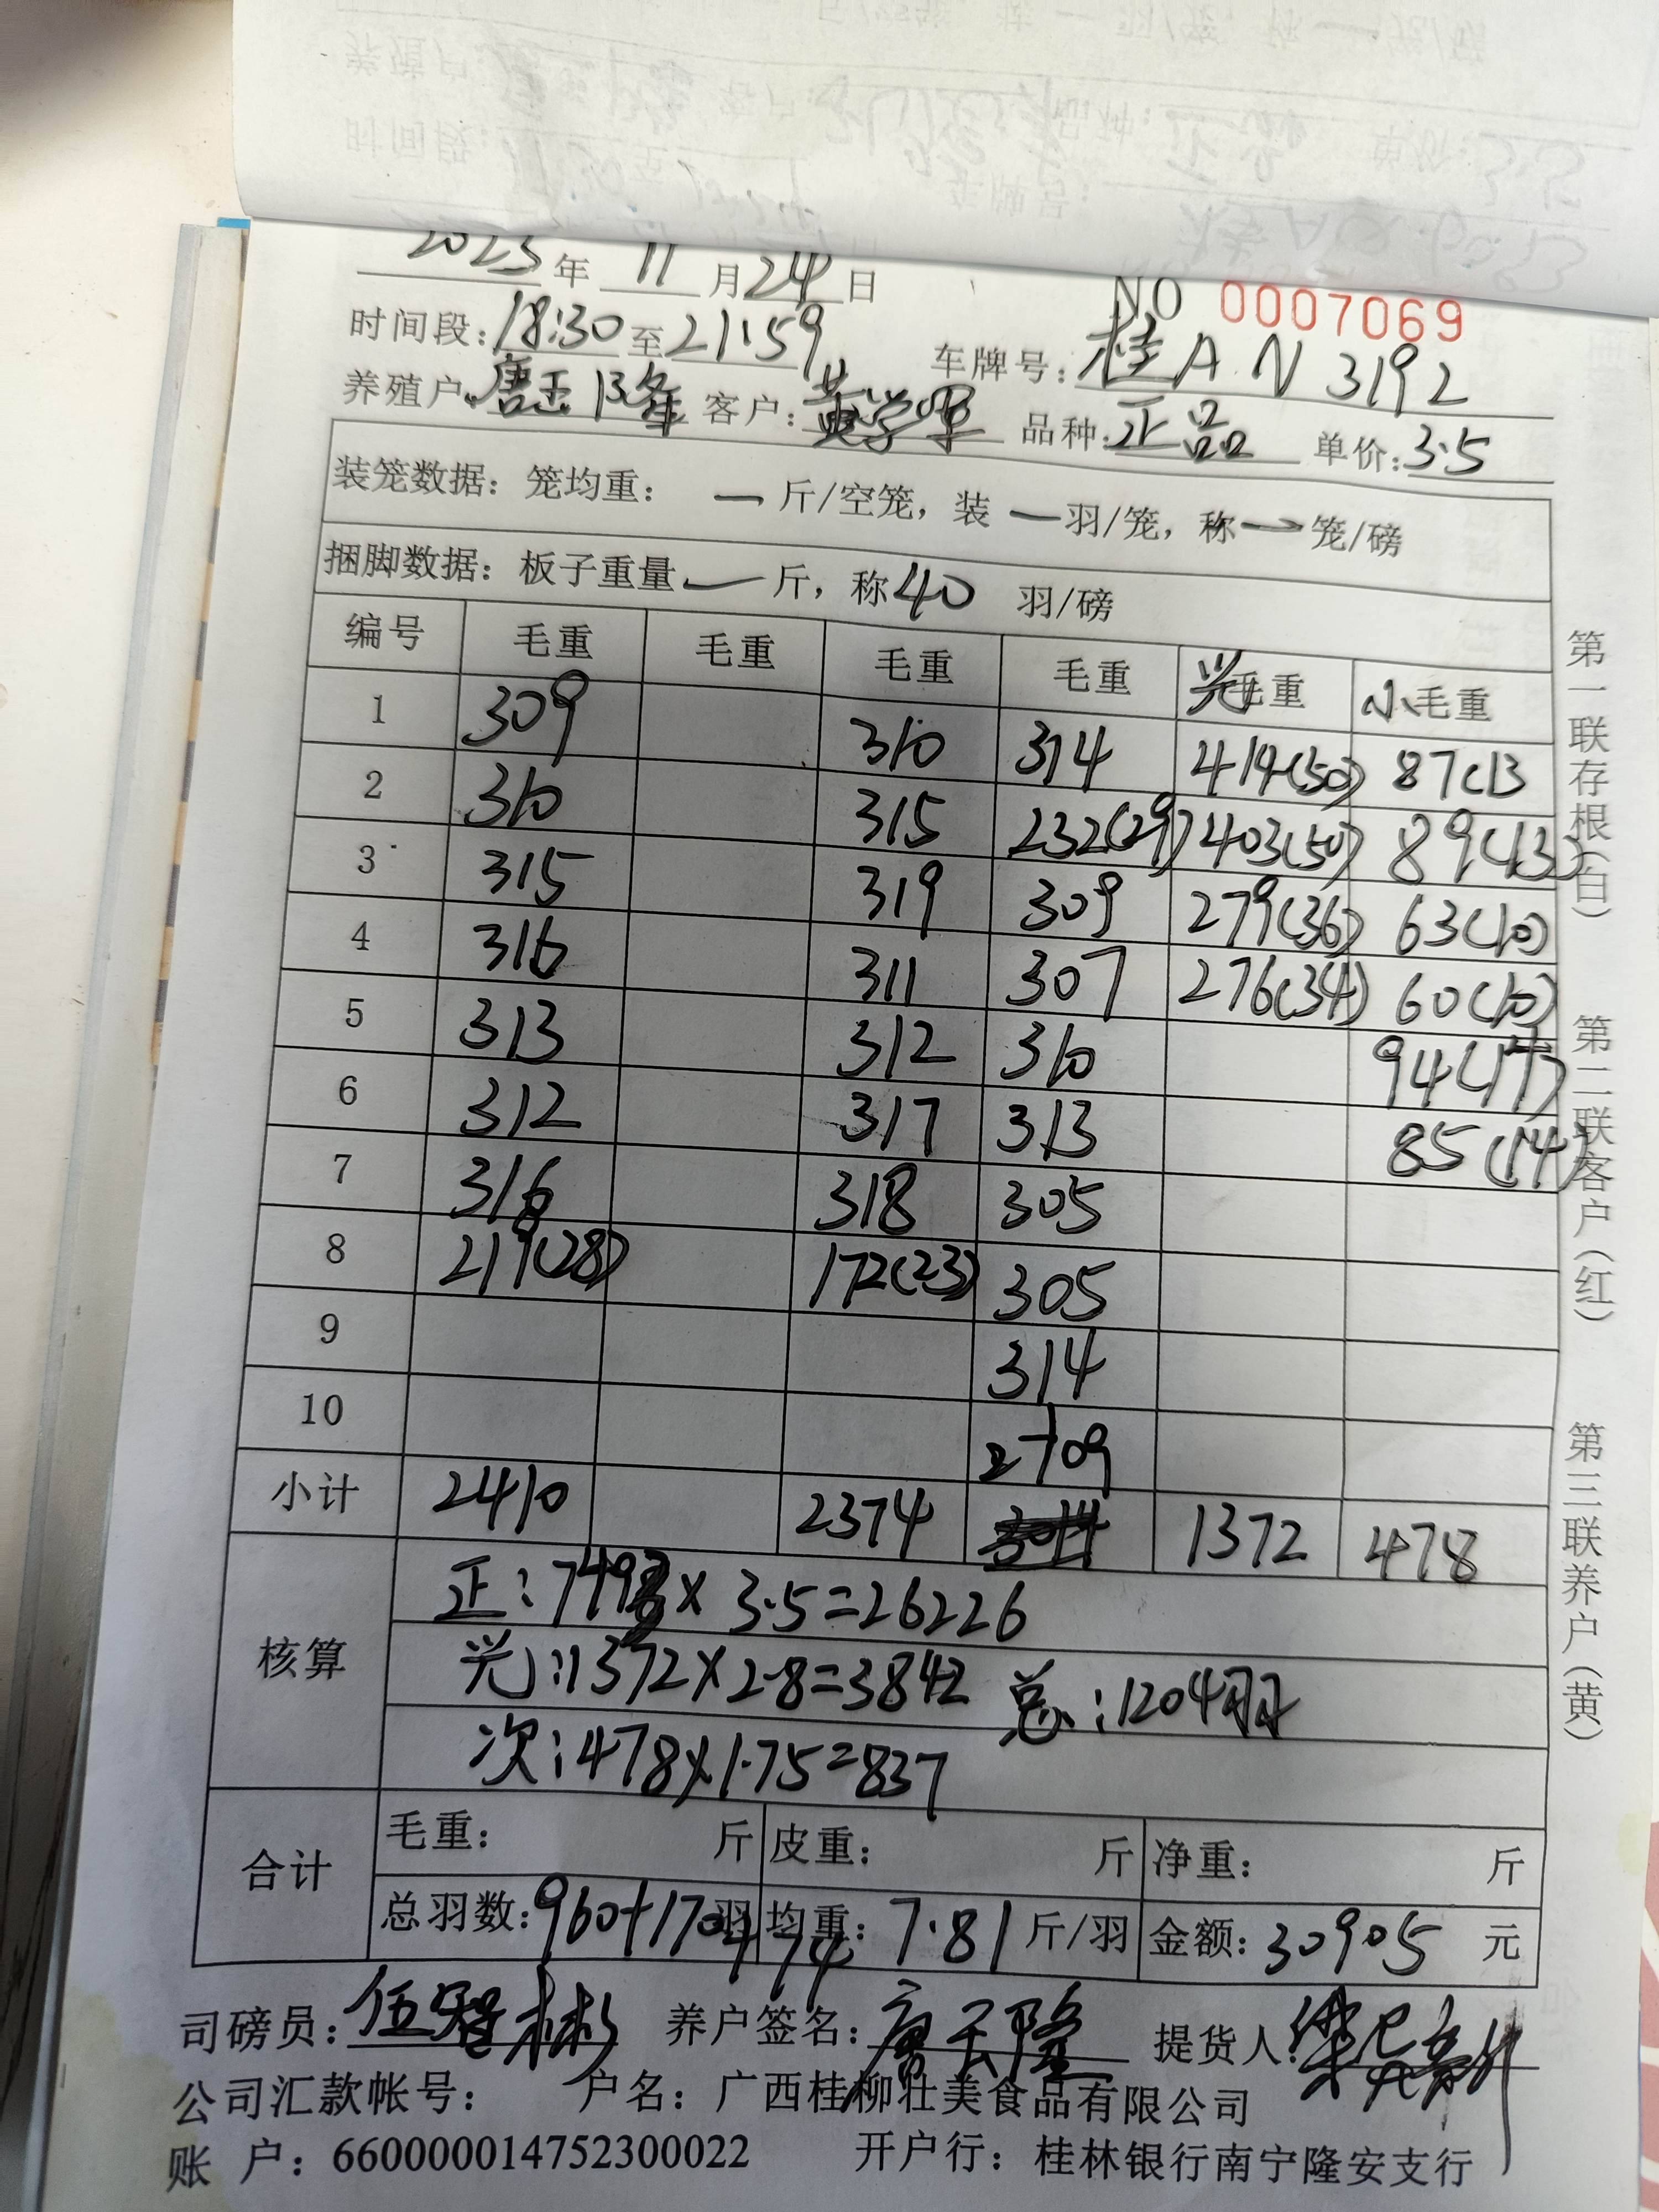 2023年 11月24日 NO 0007069
时间段:18:30至21:59 车牌号:桂A N 3192
养殖户:唐玉隆 客户:黄学军 品种:正品 单价:3.5
装笼数据: 笼均重: 一 斤/空笼, 装 一 羽/笼, 称 一 笼/磅
捆脚数据: 板子重量 一 斤, 称 40 羽/磅
编号 毛重 毛重 毛重 毛重 光毛重 小毛重
1 309 310 314 414(50) 87(13
2 310 315 232(29) 403(50) 89(13)
3 315 319 309 279(36) 63(10)
4 316 311 307 276(34) 60(10)
5 313 312 310 94(17)
6 312 317 313 85(14)
7 316 318 305
8 219(28) 172(23) 305
9 314
10 2709
小计 2410 2374 1372 478
核算
正:7493×3.5=26226
光:1372×2.8=3842 总:1204羽
次:478×1.75=837
合计
毛重: 斤 皮重: 斤 净重: 斤
总羽数:960+170+74羽 均重:7.81斤/羽 金额:30905 元
司磅员: 养户签名:唐玉隆 提货人:
公司汇款帐号: 户名:广西桂柳壮美食品有限公司
账 户:660000014752300022 开户行:桂林银行南宁隆安支行
第一联存根(白)
第二联客户(红)
第三联养户(黄)